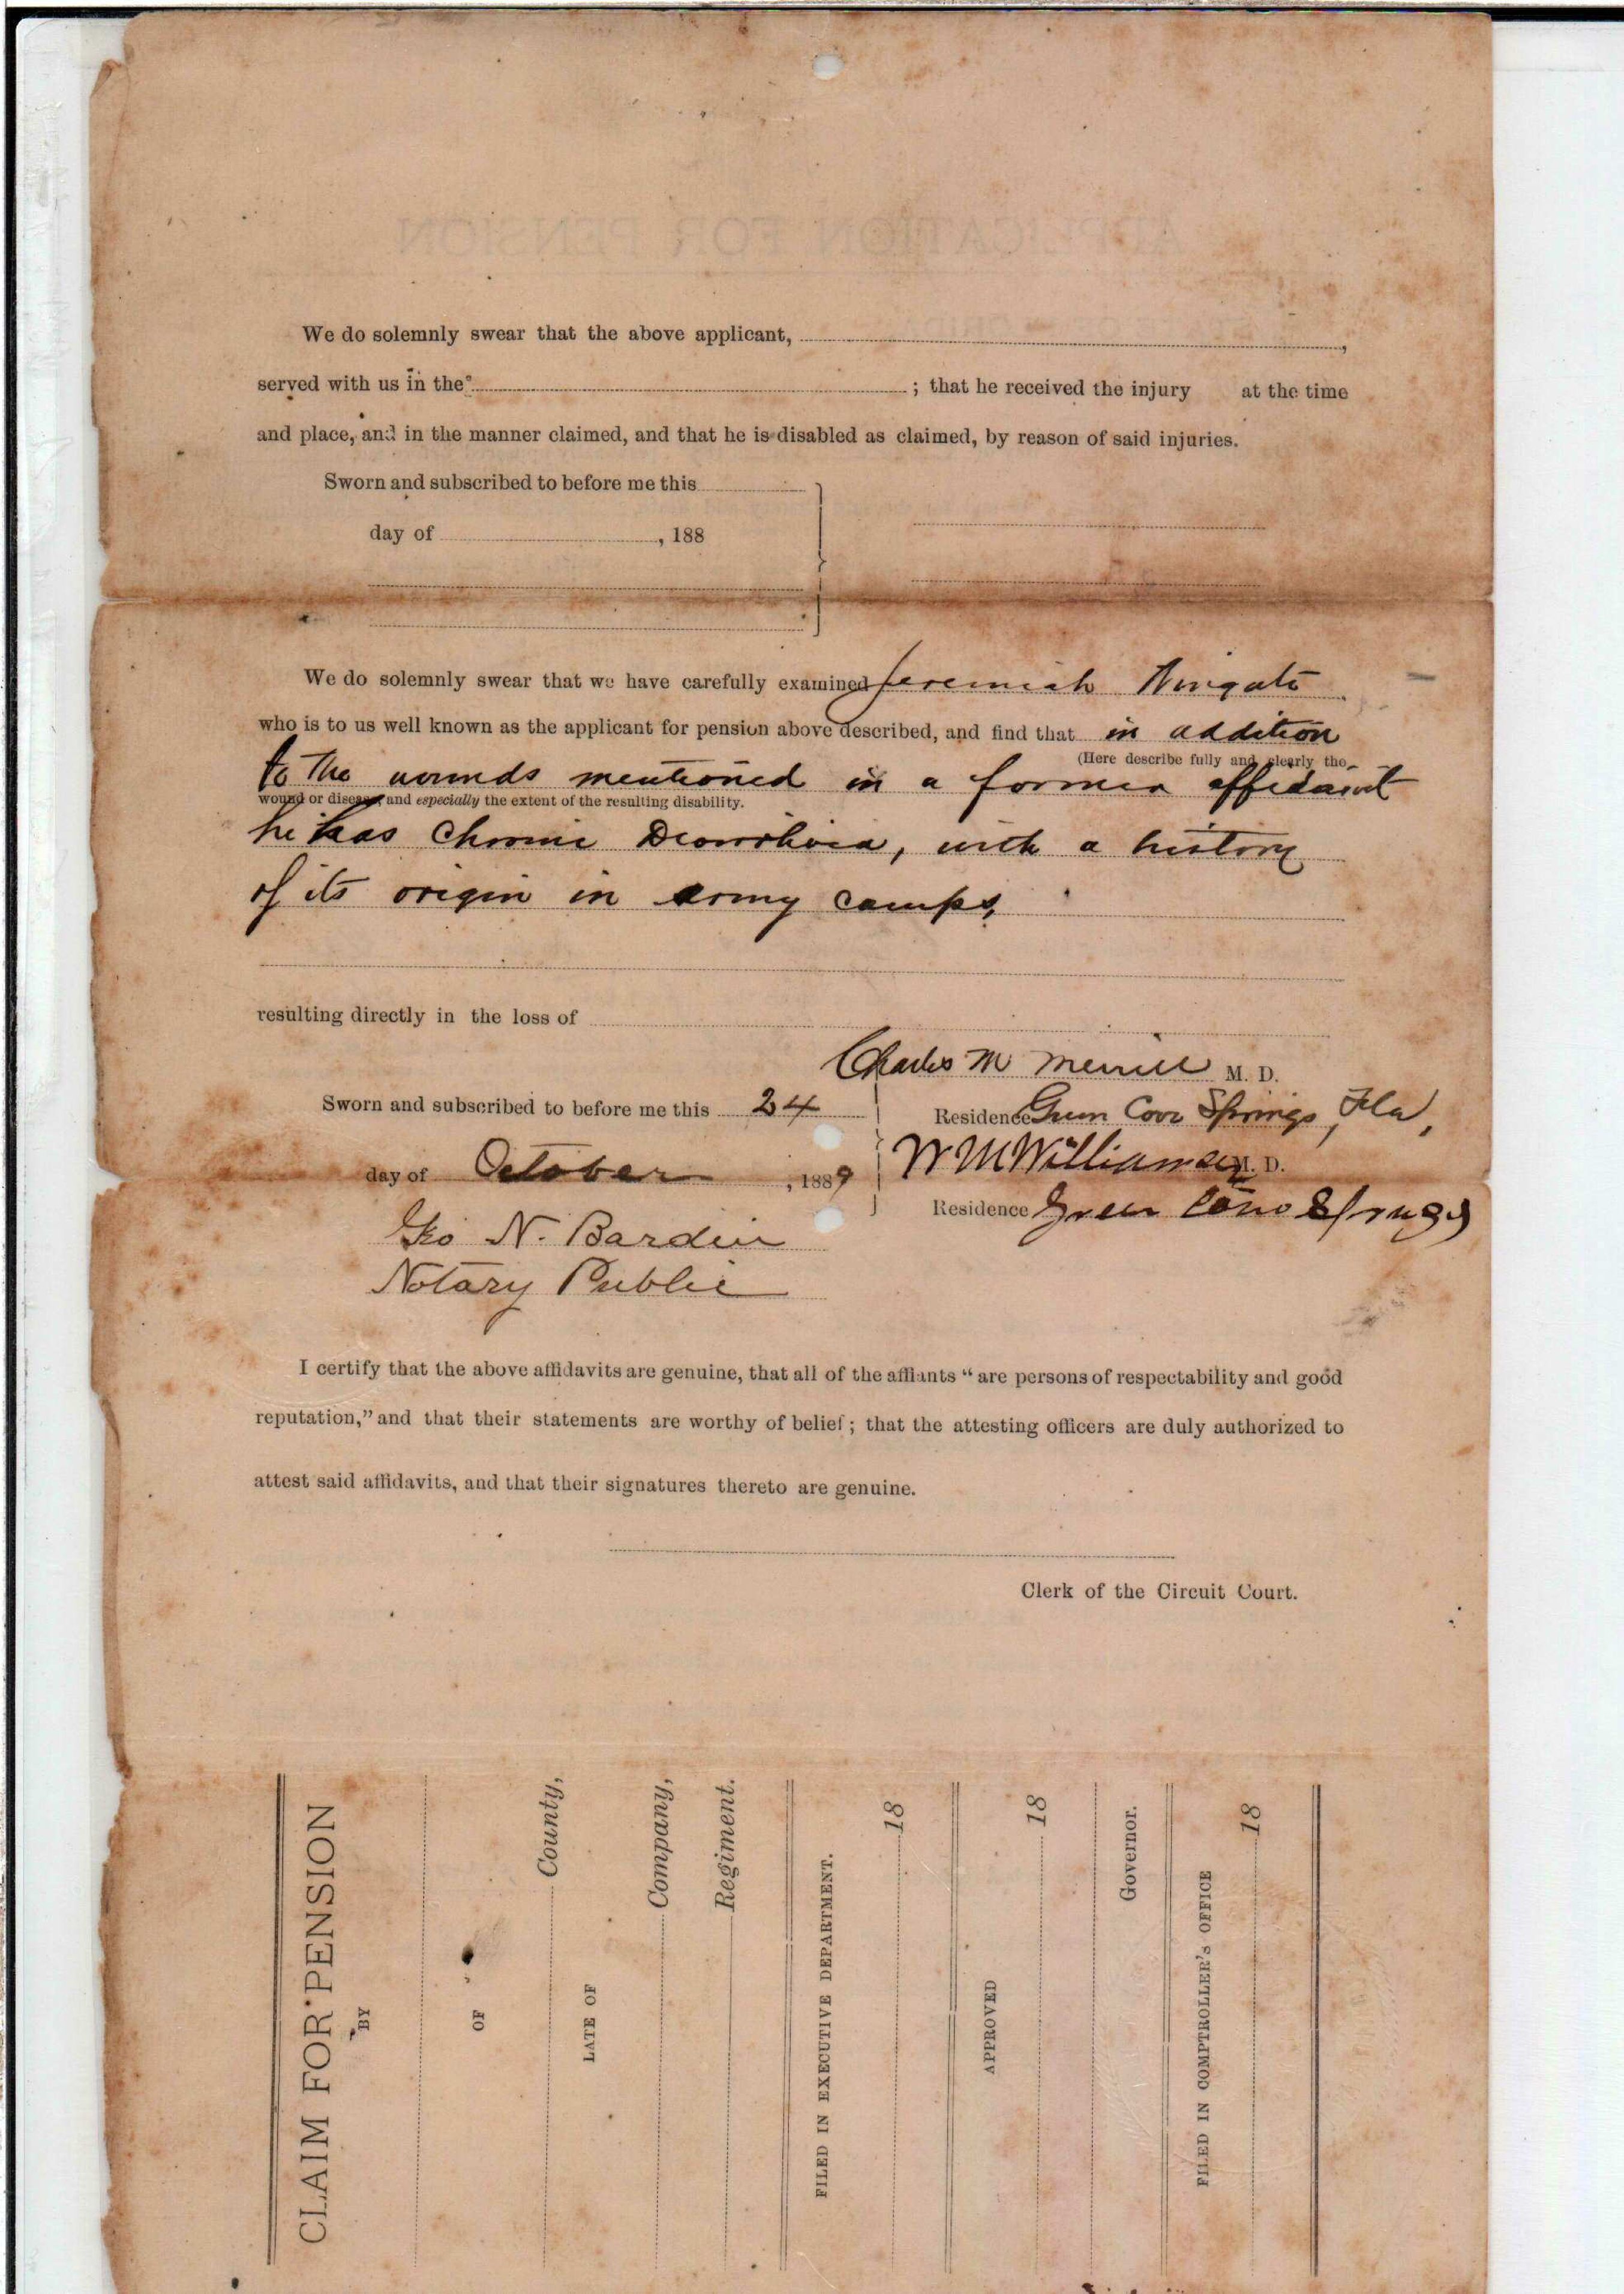 APPLICATION FOR PENSION
We do solemnly swear that the above applicant, ,
served with us in the ; that he received the injury at the time
and place, and in the manner claimed, and that he is disabled as claimed, by reason of said injuries.
Sworn and subscribed to before me this
day of , 188
We do solemnly swear that we have carefully examined Jeremiah Wingate
who is to us well known as the applicant for pension above described, and find that in addition
(Here describe fully and clearly the
to the wounds mentioned in a former affidavit
wound or disease, and especially the extent of the resulting disability.
he has Chronic Diarrhoea, with a history
of its origin in army camps,
resulting directly in the loss of
Charles M Merrill M. D.
Sworn and subscribed to before me this 24
Residence Green Cove Springs, Fla,
day of October , 1889
W M Williamson M. D.
Residence Green Cove Springs
Geo N. Bardin
Notary Public
I certify that the above affidavits are genuine, that all of the affiants "are persons of respectability and good
reputation," and that their statements are worthy of belief; that the attesting officers are duly authorized to
attest said affidavits, and that their signatures thereto are genuine.
Clerk of the Circuit Court.
CLAIM FOR PENSION
BY
OF
County,
LATE OF
Company,
Regiment.
FILED IN EXECUTIVE DEPARTMENT.
18
APPROVED
18
Governor.
FILED IN COMPTROLLER'S OFFICE
18